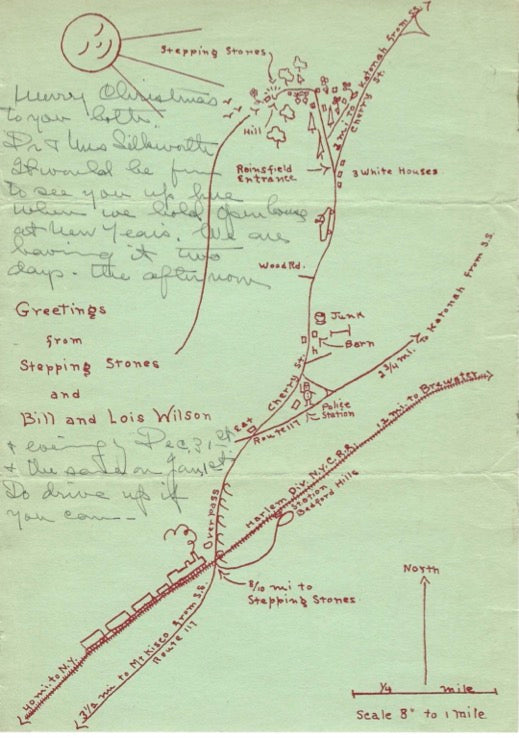 Stepping Stones
Merry Christmas
to you both
Dr & Mrs Silkworth
It would be fun
to see you up here
when we hold open house
at New Years. We are
having it two
days - the afternoon
Hill
2 mi to Katonah from S.S.
Cherry St.
Roinsfield
Entrance
3 White Houses
Wood Rd.
Junk
Barn
Greetings
from
Stepping Stones
and
Bill and Lois Wilson
Cherry St.
2 3/4 mi. to Katonah from S.S.
Police
Station
Eat
Route 117
12 mi. to Brewster
& evening Dec. 31st
& the same on Jan 1st
Do drive up if
you can -
Overpass
Harlem Div. N.Y.C.R.R.
Station
Bedford Hills
8/10 mi to
Stepping Stones.
40 mi. to N.Y.
3 1/2 mi to Mt Kisco from S.S.
Route 117
North
1/4 mile
Scale 8" to 1 mile